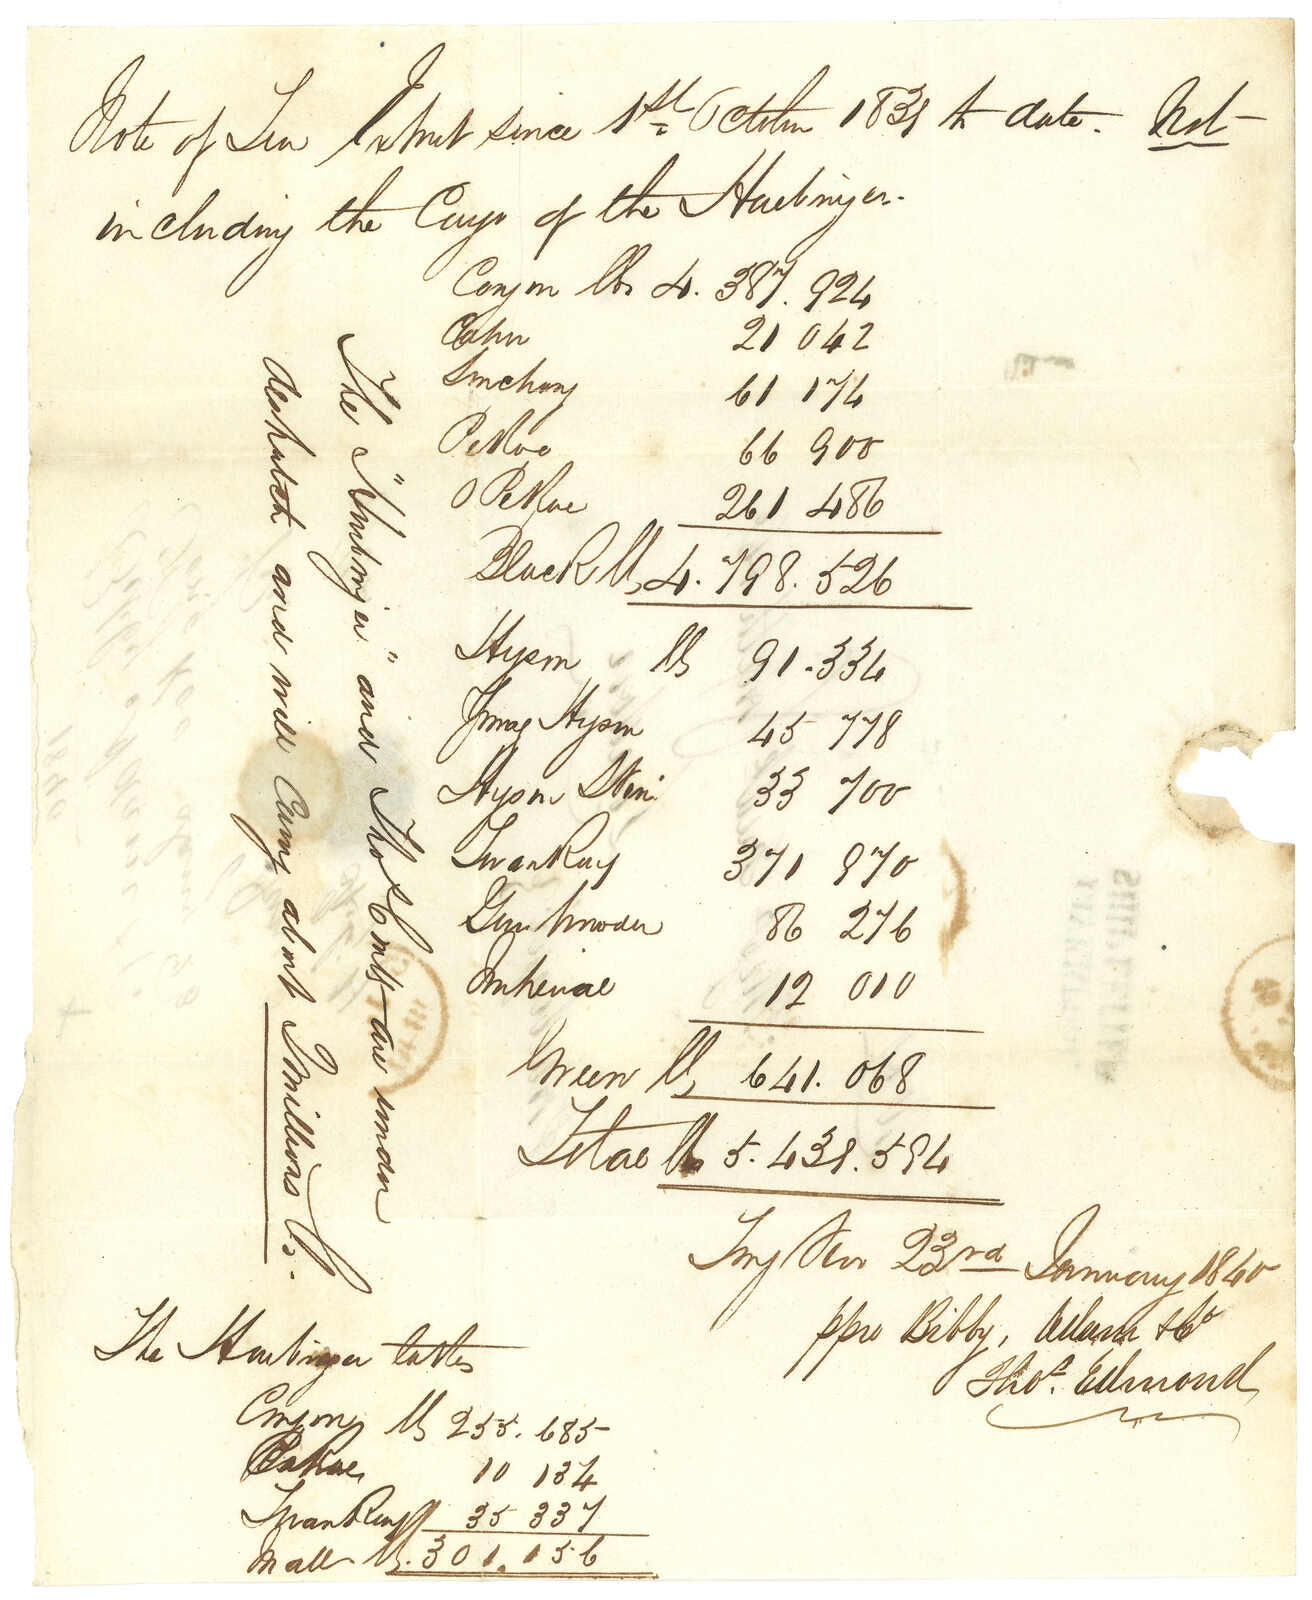 Note of Tea Export since 1st October 1839 to date. Not
including the Cargo of the Harbinger.
Congou lbs 4.387.924
Caper 21 042
Souchong 61 174
Pekoe 66 900
O Pekoe 261 486
Black lbs 4.798.526
Hyson lbs 91.334
Young Hyson 45 778
Hyson Skin 33 700
Twankay 371 970
Gunpowder 86 276
Imperial 12 010
Green lbs 641.068
Total lbs 5.439.594
Tong Koo 23rd January 1840
ppro Bibby, Adam & Co
Thos. Edmond
The "Harbinger" and Thos Coutts are under
despatch and will carry about 1 millions lbs.
The Harbinger takes
Congou lbs 255.685
Pekoe 10 134
Twankay 35 337
In all lbs. 301.156
SHIP LETTER